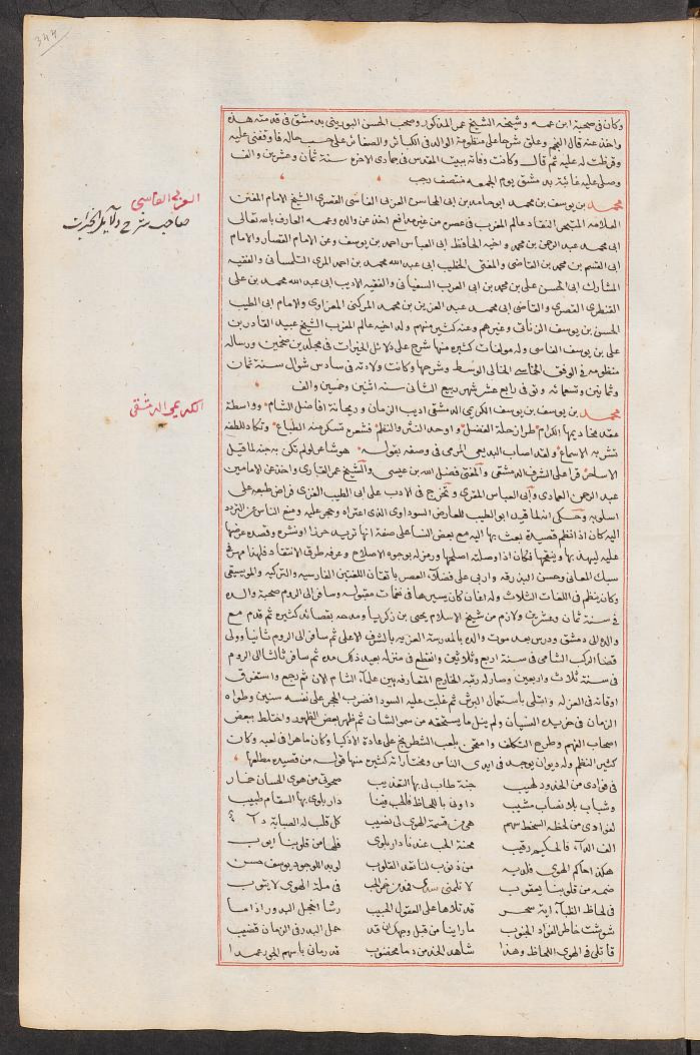 344
وكان في صحبة ابن عمه وشيخه الشيخ عمر المذكور وصحب الحسن البوريني بدمشق في قدمته هذه
واخذ عنه قال النجم وعلق شرحا على منظومة الوالد في الكبائر والصغائر على حسب حاله فاوقفني عليه
وقرظت له عليه ثم قال وكانت وفاته ببيت المقدس في جمادى الاخره سنة ثمان وعشرين والف
وصلي عليه غائبة بدمشق يوم الجمعه منتصف رجب
العربي الفاسي
صاحب شرح دلايل الخيرات
محمد بن يوسف بن محمد ابو حامد بن ابي المحاسن العربي الفاسي القصري الشيخ الامام المفنن
العلامه المتبحر النقاد عالم المغرب في عصره من غير مدافع اخذ عن والده وعمه العارف بالله تعالى
ابي محمد عبد الرحمن بن محمد واخيه الحافظ ابي العباس احمد بن يوسف وعن الامام القصار والامام
ابي القسم بن محمد بن القاضي والمفتي الخطيب ابي عبد الله محمد بن احمد المري التلمساني والفقيه
المشارك ابي الحسن علي بن محمد بن ابي العرب السفياني والفقيه الاديب ابي عبد الله محمد بن علي
القنطري القصري والقاضي ابي محمد عبد العزيز بن محمد المركني المغراوي والامام ابي الطيب
الحسن بن يوسف الزناتي وغيرهم وعنه كثير منهم ولد اخيه عالم المغرب الشيخ عبد القادر بن
علي بن يوسف الفاسي وله مولفات كثيره منها شرح على دلائل الخيرات في مجلدين ضخمين ورساله
منظومه في الوفق الخماسي الخالي الوسط وشرحها وكانت ولادته في سادس شوال سنة ثمان
وثمانين وتسعمائه وتوفي رابع عشر شهر ربيع الثاني سنه اثنين وخمسين والف
الكريمي الدمشقي
محمد بن يوسف بن يوسف الكريمي الدمشقي اديب الزمان وريحانة افاضل الشام وواسطة
عقد مخاديمها الكرام طراز حلة الفضل واوحد النثر والنظم فشعره تسكر منه الطباع وتكاد للطفه
تشربه الاسماع ولقد اصاب البديعي المرمى في وصفه بقوله هو شاعر لو لم تكن به جنه لما قيل
الا ساحر قرا على الشرف الدمشقي والمفتي فضل الله بن عيسى والشيخ عمر القاري واخذ عن الامامين
عبد الرحمن العمادي وابي العباس المقري وتخرج في الادب على ابي الطيب الغزي فراض طبعه على
اسلوبه وحكى انه لما قيد ابو الطيب للعارض السوداوي الذي اعتراه وحجر عليه ومنع الناس من التردد
اليه كان اذا نظم قصيدة بعث بها اليه مع بعض النسا على صفة انها تريد حرزا او نشره وقصده عرضها
عليه ليهذبها وينقحها فكان اذا وصلته اصلحها ورمز له بوجوه الاصلاح وعرفه طرق الانتقاد فلهذا مهر في
سبك المعاني وحسن البدرقه واربى على فضلاء العصر باتقان اللغتين الفارسيه والتركيه والموسيقى
وكان ينظم في اللغات الثلاث وله اغان كان يسيرها في نغمات مقبوله وسافر الى الروم صحبة والده
في سنة ثمان وعشرين ولازم من شيخ الاسلام يحيى بن زكريا ومدحه بقصائد كثيره ثم قدم مع
والده الى دمشق ودرس بعد موت والده بالمدرسة العزيه بالشرف الاعلى ثم سافر الى الروم ثانيا وولي
قضا الركب الشامي في سنة اربع وثلاثين وانقطع في منزله بعد ذلك مده ثم سافر ثالثا الى الروم
في سنة ثلاث واربعين وصار له رتبة الخارج المتعارفه بين علماء الشام الان ثم رجع واستغرق
اوقاته في العزله وابتلي باستعمال البرش ثم غلبت عليه السودا فضرب الحجر على نفسه سنين وطواه
الزمان في جريدة النسيان ولم ينل ما يستحقه من سمو الشان ثم ظهر بعض الظهور واختلط ببعض
اصحاب الفهم وطرح التكلف وامتحن بلعب الشطرنج على عادة الاذكيا وكان ماهرا في لعبه وكان
كثير النظم وله ديوان يوجد في ايدي الناس ومختاراته كثيره منها قوله من قصيده مطلعها
في فوادي من الخدود لهيب جنة طاب لي بها التعذيب صحوتي من هوى الحسان خمار
وشباب بلا نصاب مشيب داوني باللحاظ فالحب فينا دار بلوى بها السقام طبيب
لفوادي من لحظه السخط سهم هي من قسمة الهوى لي نصيب كل قلب له الصبابة داء
الف الداء فالحكيم رقيب محنة الحب عندنا دار بلوى قلبها من قلوبنا ايوب
هكذا احاكم الهوى فلديه من ذنوب لنا تعد القلوب لو بدا للوجود يوسف حسن
ضمه من قلوبنا يعقوب لا تلمني في ملة الهوى لا يتوب
في لحاظ الظباء اية سحر قد تلاها على العقول الحبيب رشا اخجل البدور اذا ما
شوشت خاطر الفواد الجنوب ما راينا من قبل وجهك قد حمل البدر في الزمان قضيب
قاتلي في الهوى اللحاظ وهذا شاهد الخد من دما مخضوب قد رماني باسهم الجور عمدا